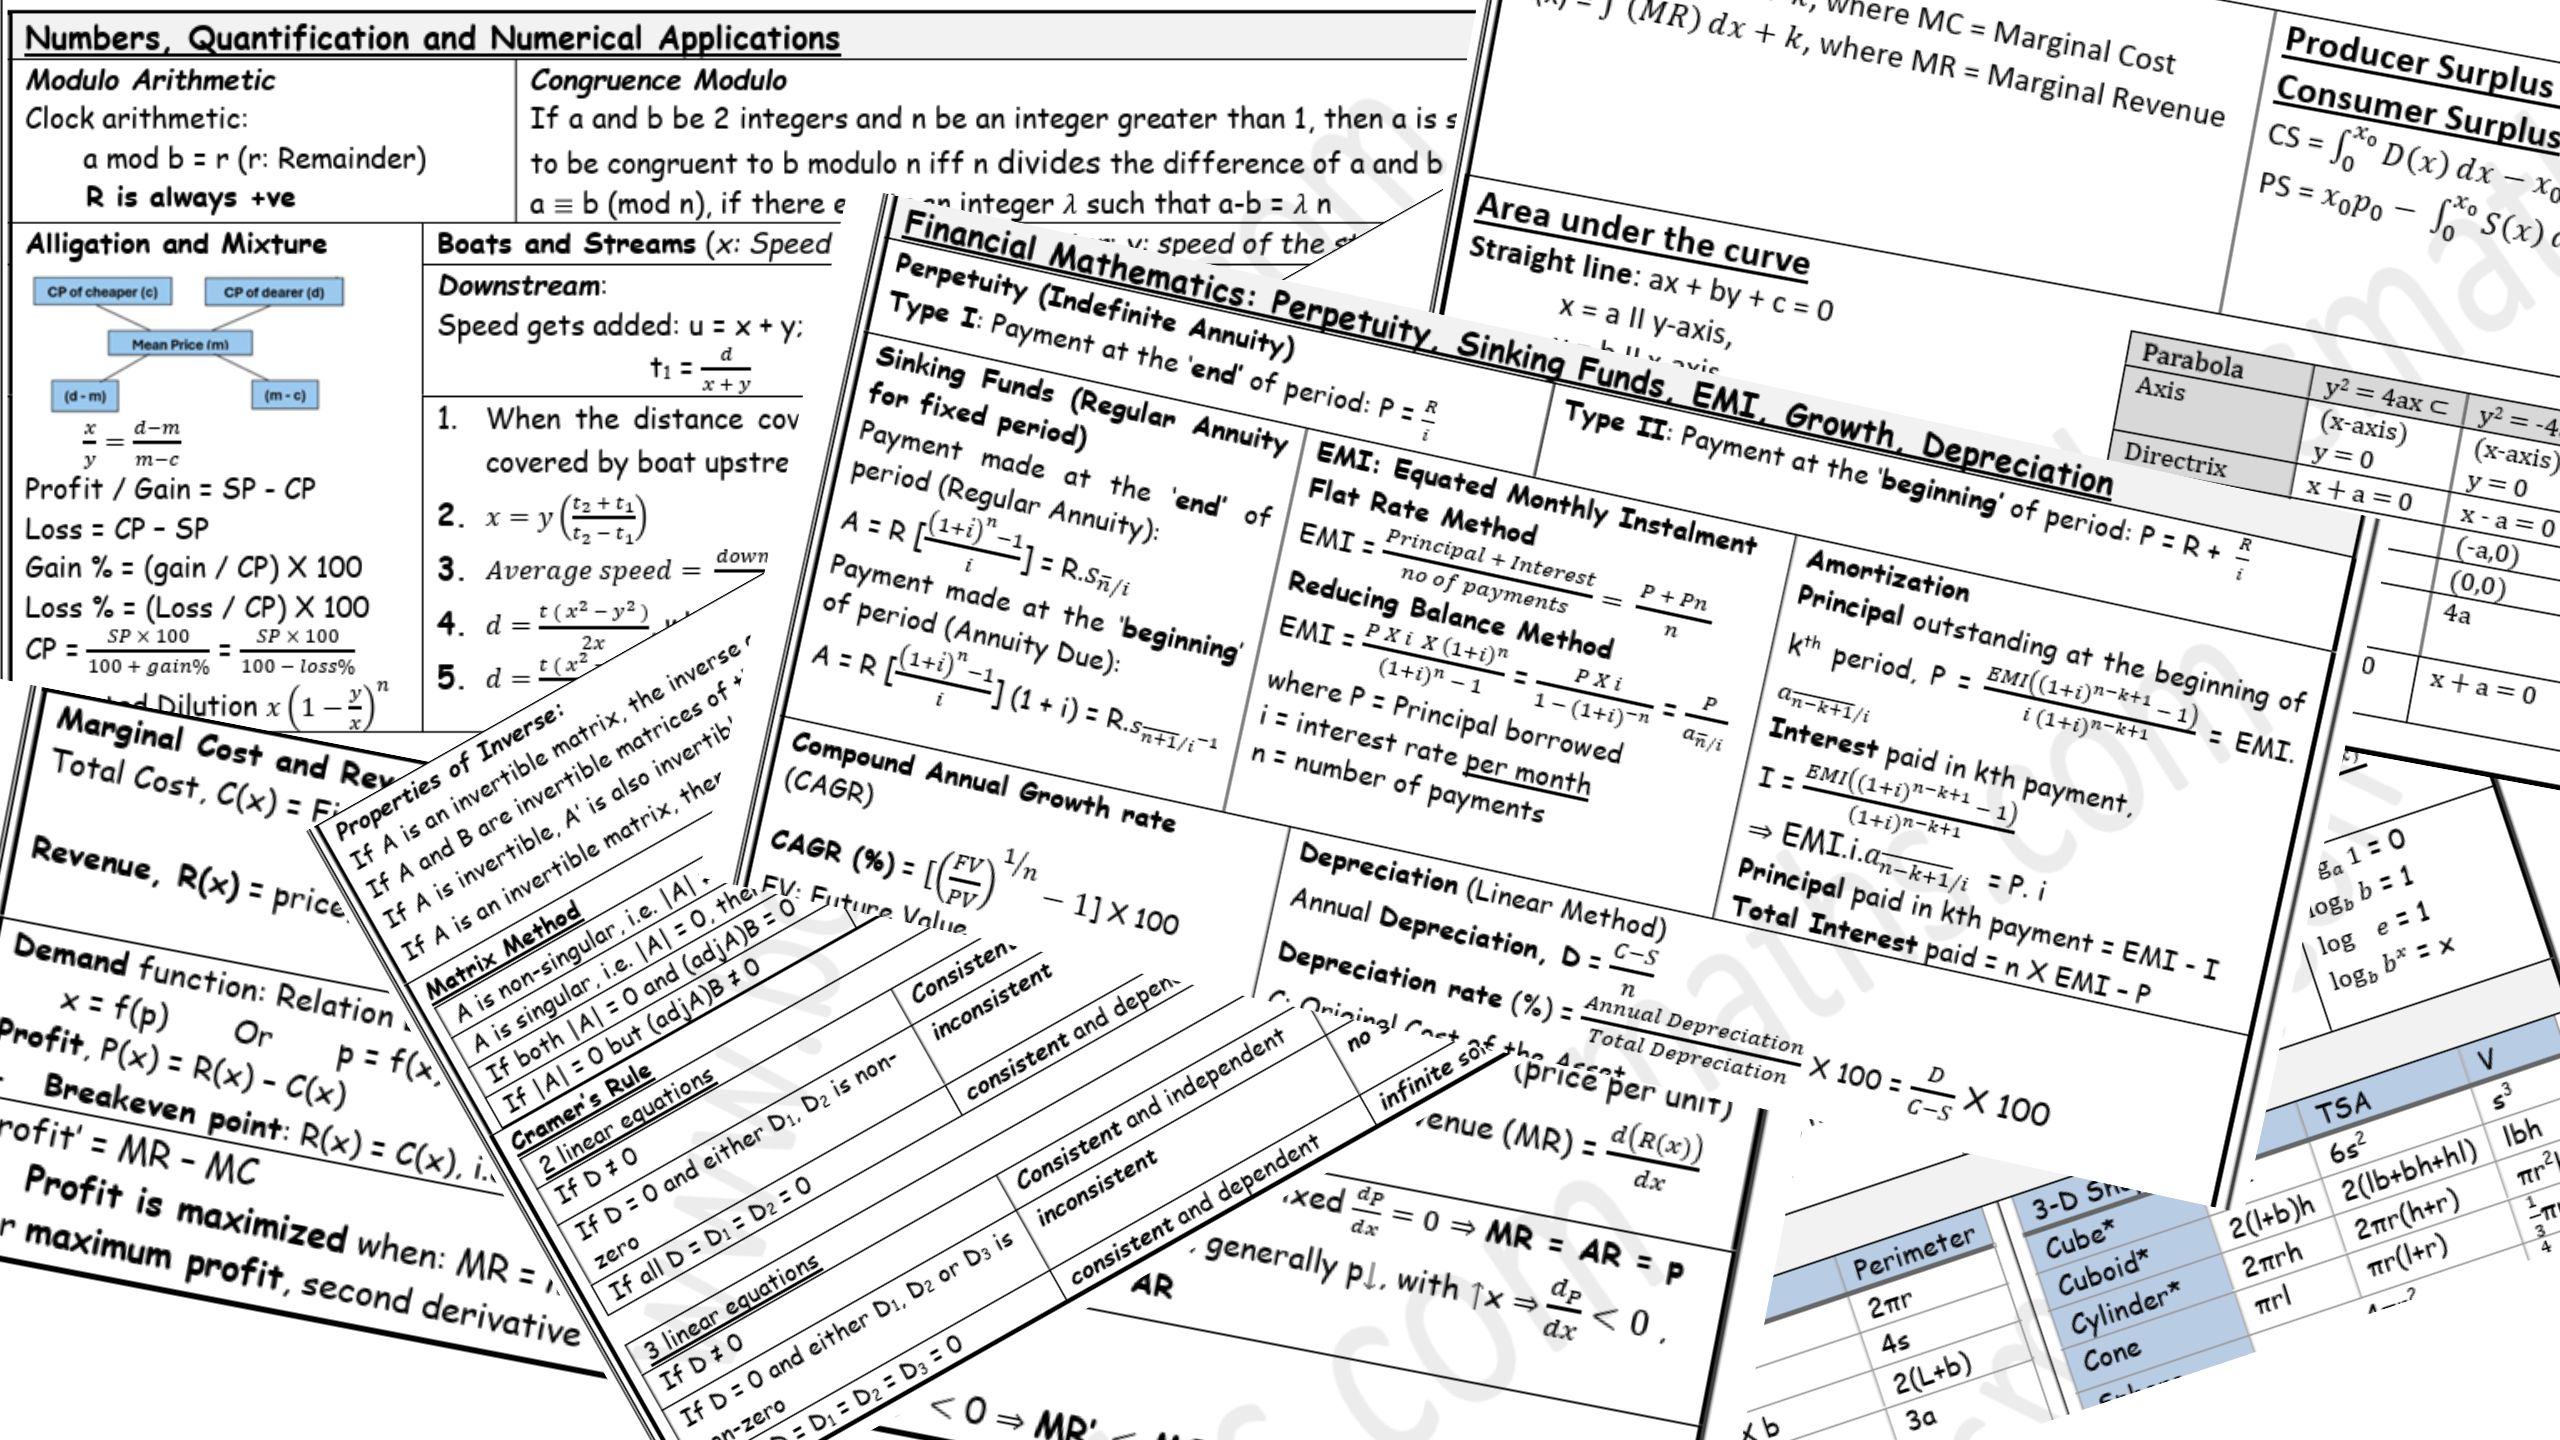 Numbers, Quantification and Numerical Applications
Modulo Arithmetic
Clock arithmetic:
a mod b = r (r: Remainder)
R is always +ve
Congruence Modulo
If a and b be 2 integers and n be an integer greater than 1, then a is
to be congruent to b modulo n iff n divides the difference of a and b
a ≡ b (mod n), if there
an integer λ such that a-b = λ n
Alligation and Mixture
CP of cheaper (c)
CP of dearer (d)
Mean Price (m)
(d - m)
(m - c)
x/y = (d−m)/(m−c)
Profit / Gain = SP - CP
Loss = CP - SP
Gain % = (gain / CP) X 100
Loss % = (Loss / CP) X 100
CP = (SP × 100)/(100 + gain%) = (SP × 100)/(100 − loss%)
Dilution x (1 − y/x)^n
Boats and Streams (x: Speed
y: speed of the
Downstream:
Speed gets added: u = x + y;
t₁ = d/(x + y)
1. When the distance
covered by boat
2. x = y ((t₂ + t₁)/(t₂ − t₁))
3. Average speed =
4. d = t (x² − y²)/2x
5. d =
(MR) dx + k, where MR = Marginal Revenue
where MC = Marginal Cost
Producer Surplus
Consumer Surplus
CS = ∫₀^x₀ D(x) dx − x₀
PS = x₀p₀ − ∫₀^x₀ S(x)
Area under the curve
Straight line: ax + by + c = 0
x = a II y-axis,
Parabola
y² = 4ax ⊂
y² = -4
Axis
(x-axis)
y = 0
(x-axis)
y = 0
Directrix
x + a = 0
x - a = 0
(-a,0)
(0,0)
4a
0
x + a = 0
Financial Mathematics: Perpetuity, Sinking Funds, EMI, Growth, Depreciation
Perpetuity (Indefinite Annuity)
Type I: Payment at the 'end' of period: P = R/i
Type II: Payment at the 'beginning' of period: P = R + R/i
Sinking Funds (Regular Annuity
for fixed period)
Payment made at the 'end' of
period (Regular Annuity):
A = R [((1+i)^n −1)/i] = R.s n̅/i
Payment made at the 'beginning'
of period (Annuity Due):
A = R [((1+i)^n −1)/i] (1 + i) = R.s n+1/i −1
EMI: Equated Monthly Instalment
Flat Rate Method
EMI = (Principal + Interest)/(no of payments) = (P + Pn)/n
Reducing Balance Method
EMI = (P X i X (1+i)^n)/((1+i)^n − 1) = (P X i)/(1 − (1+i)^−n) = P/(a n̅/i)
where P = Principal borrowed
i = interest rate per month
n = number of payments
Amortization
Principal outstanding at the beginning of
kth period, P = EMI((1+i)^(n−k+1) − 1)/(i (1+i)^(n−k+1)) = EMI.
a n−k+1/i
Interest paid in kth payment,
I = EMI((1+i)^(n−k+1) − 1)/((1+i)^(n−k+1))
⇒ EMI.i.a n−k+1/i = P. i
Principal paid in kth payment = EMI - I
Total Interest paid = n X EMI - P
Compound Annual Growth rate
(CAGR)
CAGR (%) = [(FV/PV)^(1/n) − 1] X 100
FV: Future Value
Depreciation (Linear Method)
Annual Depreciation, D = (C−S)/n
Depreciation rate (%) = (Annual Depreciation)/(Total Depreciation) X 100 = D/(C−S) X 100
C: Original Cost of the Asset
Marginal Cost and
Total Cost, C(x) =
Revenue, R(x) = price
Demand function: Relation
x = f(p) Or p = f(x
Profit, P(x) = R(x) - C(x)
Breakeven point: R(x) = C(x),
= MR - MC
Profit is maximized when: MR =
maximum profit, second derivative
Properties of Inverse:
If A is an invertible matrix, the inverse
If A and B are invertible matrices of
If A is invertible, A' is also
If A is an invertible matrix,
Matrix Method
A is non-singular, i.e. |A|
A is singular, i.e. |A| = 0,
If both |A| = 0 and (adjA)B = 0
If |A| = 0 but (adjA)B ≠ 0
Cramer's Rule
2 linear equations
If D ≠ 0
If D = 0 and either D₁, D₂ is non-
zero
inconsistent
If all D = D₁ = D₂ = 0
consistent and
3 linear equations
If D ≠ 0
Consistent and independent
If D = 0 and either D₁, D₂ or D₃ is
inconsistent
no
= D₁ = D₂ = D₃ = 0
consistent and dependent
infinite
(price per unit)
(MR) = d(R(x))/dx
dP/dx = 0 ⇒ MR = AR = p
generally p↓, with ↑x ⇒ dP/dx < 0 ,
AR
< 0 ⇒ MR'
1 = 0
log_b b = 1
log e = 1
log_b b^x = x
Perimeter
2πr
4s
2(L+b)
3a
3-D
TSA
V
Cube*
6s²
s³
Cuboid*
2(l+b)h
2(lb+bh+hl)
lbh
Cylinder*
2πrh
2πr(h+r)
Cone
πrl
πr(l+r)